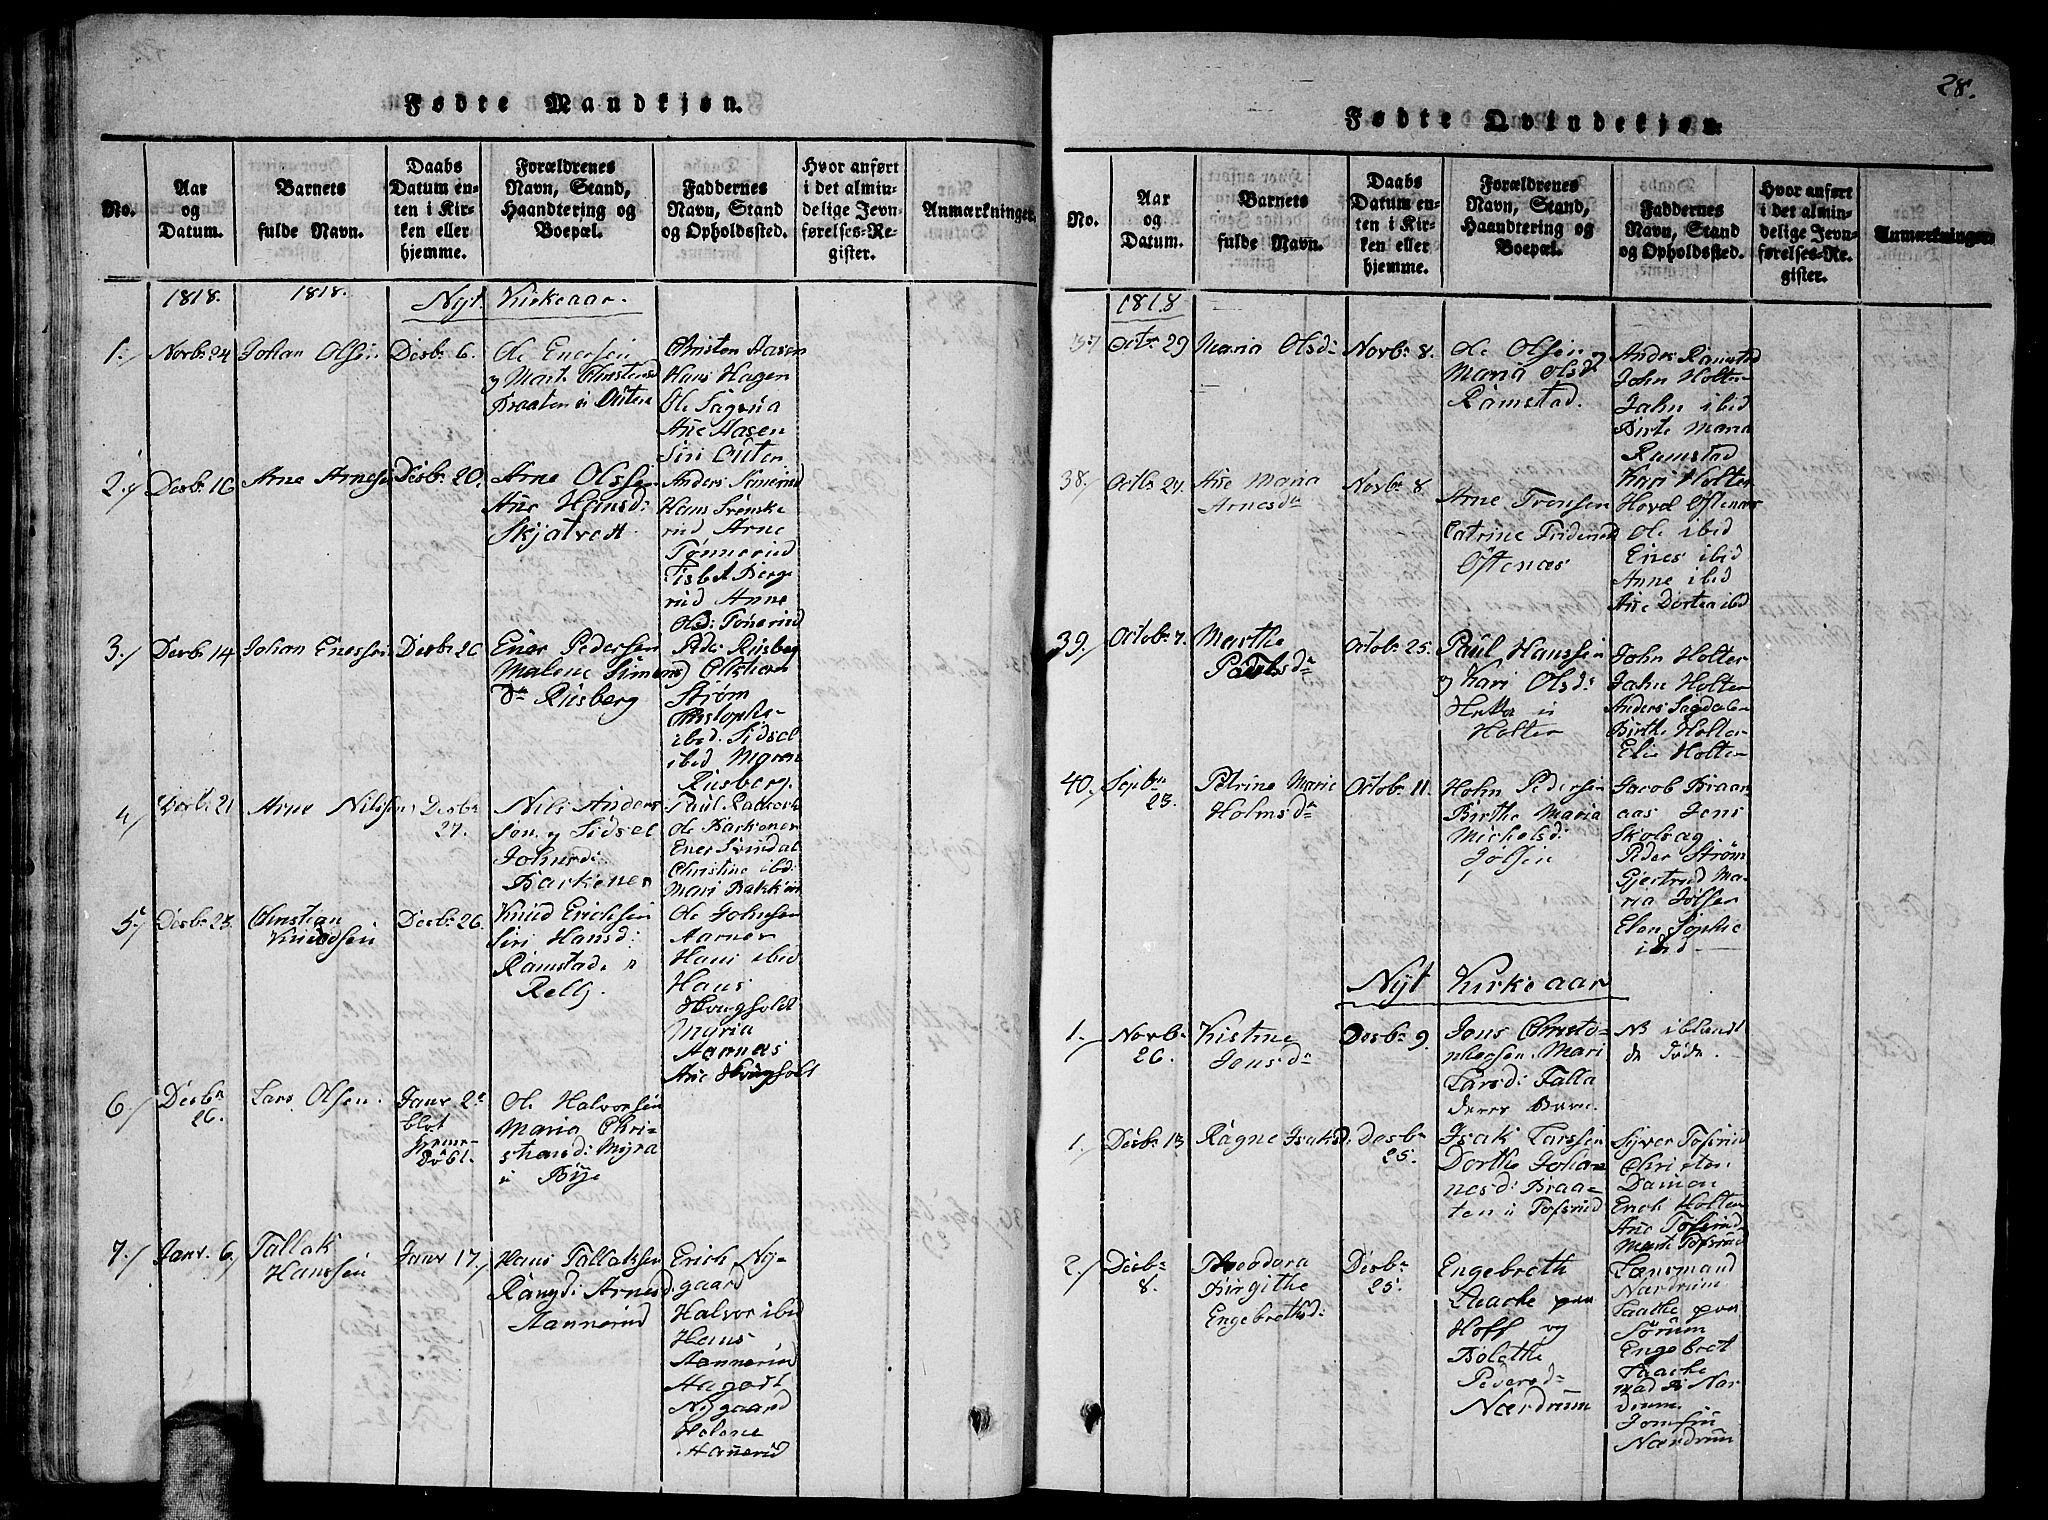 28.
Fødte Mandkjøn.
No.
Aar
og
Datum.
Barnets
fulde Navn.
Daabs
Datum en-
ten i Kir-
ken eller
hjemme.
Forældrenes
Navn, Stand,
Haandtering og
Boepæl.
Faddernes
Navn, Stand
og Opholdssted.
Hvor anført
i det almin-
delige Jevn-
førelses-Re-
gister.
Anmærkninger.
1818.
1818.
Nyt Kirkeaar.
1.
Novbr 24
Johan Olsen
Desbr 6.
Ole Enersen
og Mart. Christensd
Braaten u Outen
Christen Aasen
Hans Hagen
Ole Sagena
Ane Aasen
Siri Outen
2./
Desbr 16
Arne Arnesen
Desbr 20.
Arne Olssen
Ane Hansd:
Skjatvet
Hans Svenske
rud Arne
Tønnerud
Lisbet Berge
rud Anne
Olsd: Tonerud
3./
Desbr 14
Johan Enessen
Desbr 26
Ener Pedersen
Malene Simens
Dr Riisberg
Peder Riisberg
Strøm
ibid. Sidsel
ibid Maren
Riisberg.
4/
Desbr 21
Arne Nilssen
Desbr
27.
Nils Anders
søn og Sidsel
Johnsd:
Barkenes
Ole Barkener
Ener Svindal
Christine ibd:
Mari Bakken
5/
Desbr 23.
Christian
Knudsen
Desbr 26.
Knud Ericksen
Siri Hansd:
Ramstad u
Ole Johnsen
Aarnes
Hans ibid
Hans
Hvugholdt
Myria
Aarnæs
Ane Hvugholt
6./
Desbr
26.
Lars Olsen.
Janr 2
Ole Halvorsen
Maria Chri-
stiansd: Myra
u Bøje
7./
Janr. 6
Tallak
Hanssen
Janr 17.
Hans Tallaksen
Rangd: Arnesd
Aannerud
Erich Ny-
gaard
Halvor ibid
Hans
Aannerud
Aagodt
Nygaard
Helene
Aannerud
Fødte Qvindekjøn.
No.
Aar
og
Datum.
Barnets
fulde Navn.
Daabs
Datum en-
ten i Kir-
ken eller
hjemme.
Forældrenes
Navn, Stand,
Haandtering og
Boepæl.
Faddernes
Navn, Stand
og Opholdssted.
Hvor anført
i det almin-
delige Jevn-
førelses-Re-
gister.
Anmærkninger.
1818
37
Octr 29
Maria Olsd:
Novbr 8.
Ole Olsen og
Maria Olsd
Ramstad.
Anders Ramstad
John Holter
John ibid
Birte Maria
Ramstad
Kari Holter
38./
Octbr 27.
Ane Maria
Arnesdr
Novbr 8
Arne Tronsen
Catrine Fridensd
Østenæs
Hovel Østenæs
Ole ibid
Enes ibid
Anne ibid
Ane Dorten ibd
39./
Octobr 7.
Marthe
Paulsdr
Octobr 25.
Paul Hanssen
og Kari Olsd:
Holter
John Holter
John Holter
Anders Sagdalen
Birthe Holter
Elie Holter
40./
Sepbr
23.
Petrine Marie
Holmsdr
Octobr 11.
Holm Pedersen
Birthe Maria
Michelsd:
Jølsen
Jacob Braar
aas Jens
Skolvag
Peder Strøm
Gjertrud Ma-
ria Jølsen
Elen Sophie
ibid
Nyt Kirkeaar
1.
Novbr
26.
Kistine
Jonsdr
Desbr 9.
Jons Christo-
phersen. Mari
Larsd: Falla
NB iblandt
de døde.
1.
Desbr 13
Ragne Isaksd:
Desbr
25.
Isak Larssen
Dorthe Joha-
nesd: Braa-
ten u Tofsrud
Syver Tofsrud
Christen
Damen
Erich Holter
Ane Tofsrud
Marit Tofsrud
2./
Desbr
8.
Theodora
Birgithe
Engebrethsd:
Desbr
25.
Engebreth
Laache paa
Hoff og
Bolethe
Pedersd-
Nærdrum
Lænsmand
Nærdrum.
Laache paa
Sørum
Engebret
Laache
Mad. Nær
drum.
Jomfru
Nærdrum